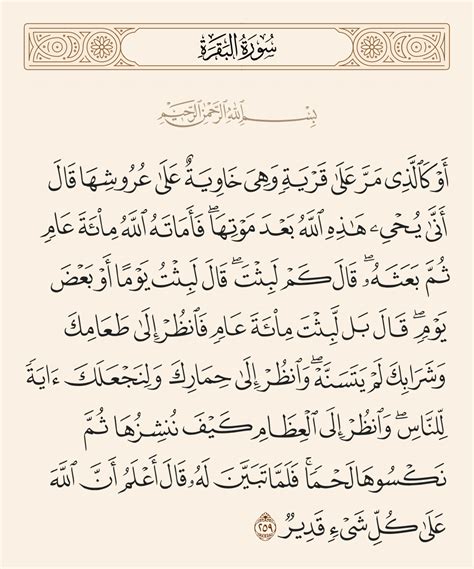 سُورَةُ الْبَقَرَةِ
بِسْمِ اللَّهِ الرَّحْمَٰنِ الرَّحِيمِ
أَوْ كَٱلَّذِى مَرَّ عَلَىٰ قَرْيَةٍ وَهِىَ خَاوِيَةٌ عَلَىٰ عُرُوشِهَا قَالَ
أَنَّىٰ يُحْىِۦ هَٰذِهِ ٱللَّهُ بَعْدَ مَوْتِهَا ۖ فَأَمَاتَهُ ٱللَّهُ مِا۟ئَةَ عَامٍ
ثُمَّ بَعَثَهُۥ ۖ قَالَ كَمْ لَبِثْتَ ۖ قَالَ لَبِثْتُ يَوْمًا أَوْ بَعْضَ
يَوْمٍ ۖ قَالَ بَل لَّبِثْتَ مِا۟ئَةَ عَامٍ فَٱنظُرْ إِلَىٰ طَعَامِكَ
وَشَرَابِكَ لَمْ يَتَسَنَّهْ ۖ وَٱنظُرْ إِلَىٰ حِمَارِكَ وَلِنَجْعَلَكَ ءَايَةً
لِّلنَّاسِ ۖ وَٱنظُرْ إِلَى ٱلْعِظَامِ كَيْفَ نُنشِزُهَا ثُمَّ
نَكْسُوهَا لَحْمًا ۚ فَلَمَّا تَبَيَّنَ لَهُۥ قَالَ أَعْلَمُ أَنَّ ٱللَّهَ
عَلَىٰ كُلِّ شَىْءٍ قَدِيرٌ ٢٥٩